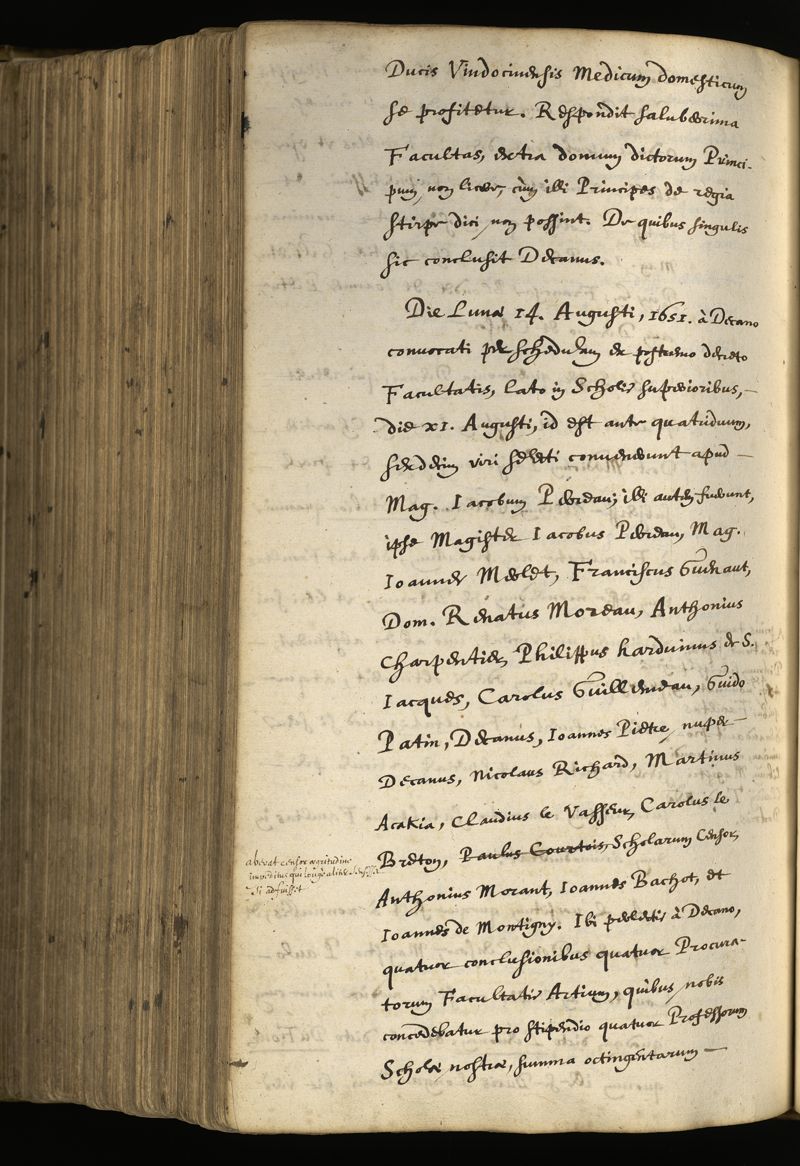 Ducis Vindocinensis Medicum domesticum
se profitetur. Respondit saluberrima
Facultas, extra domum dictorum Princi-
pum, non licere, cùm illi Principes de regia
stirpe dici non possint. De quibus singulis
sic conclusit Decanus.
Die Lunæ 14. Augusti, 1651. à Decano
convocati per schedulam ex postremo decreto
Facultatis, lato in Scholis superioribus,
die XI. Augusti, id est ante quatriduum,
sexdecim viri selecti convenerunt apud
Mag. Iacobum Perreau; illi autem fuerunt,
ipse Magister Iacobus Perreau, Mag.
Ioannes Merlet, Franciscus Guenaut,
Dom. Renatus Moreau, Anthonius
Charpentier, Philippus Harduinus de S.
Iacques, Carolus Guillemeau, Guido
Patin, Decanus, Ioannes Pietre, nuper
Decanus, Nicolaus Richard, Martinus
Acakia, Claudius le Vasseur, Carolus le
Breton, Paulus Courtois, Scholarum Censor,
Anthonius Morant, Ioannes Bachot, et
Ioannes de Montigny. Ibi perlectis à Decano,
quatuor conclusionibus quatuor Procura-
torum Facultatis Artium, quibus nobis
concedebatur pro stipendio quatuor Professorum
Scholæ nostræ, summa octingentarum
aberat censor ægritudine
impeditus qui longe aliter
si adfuisset